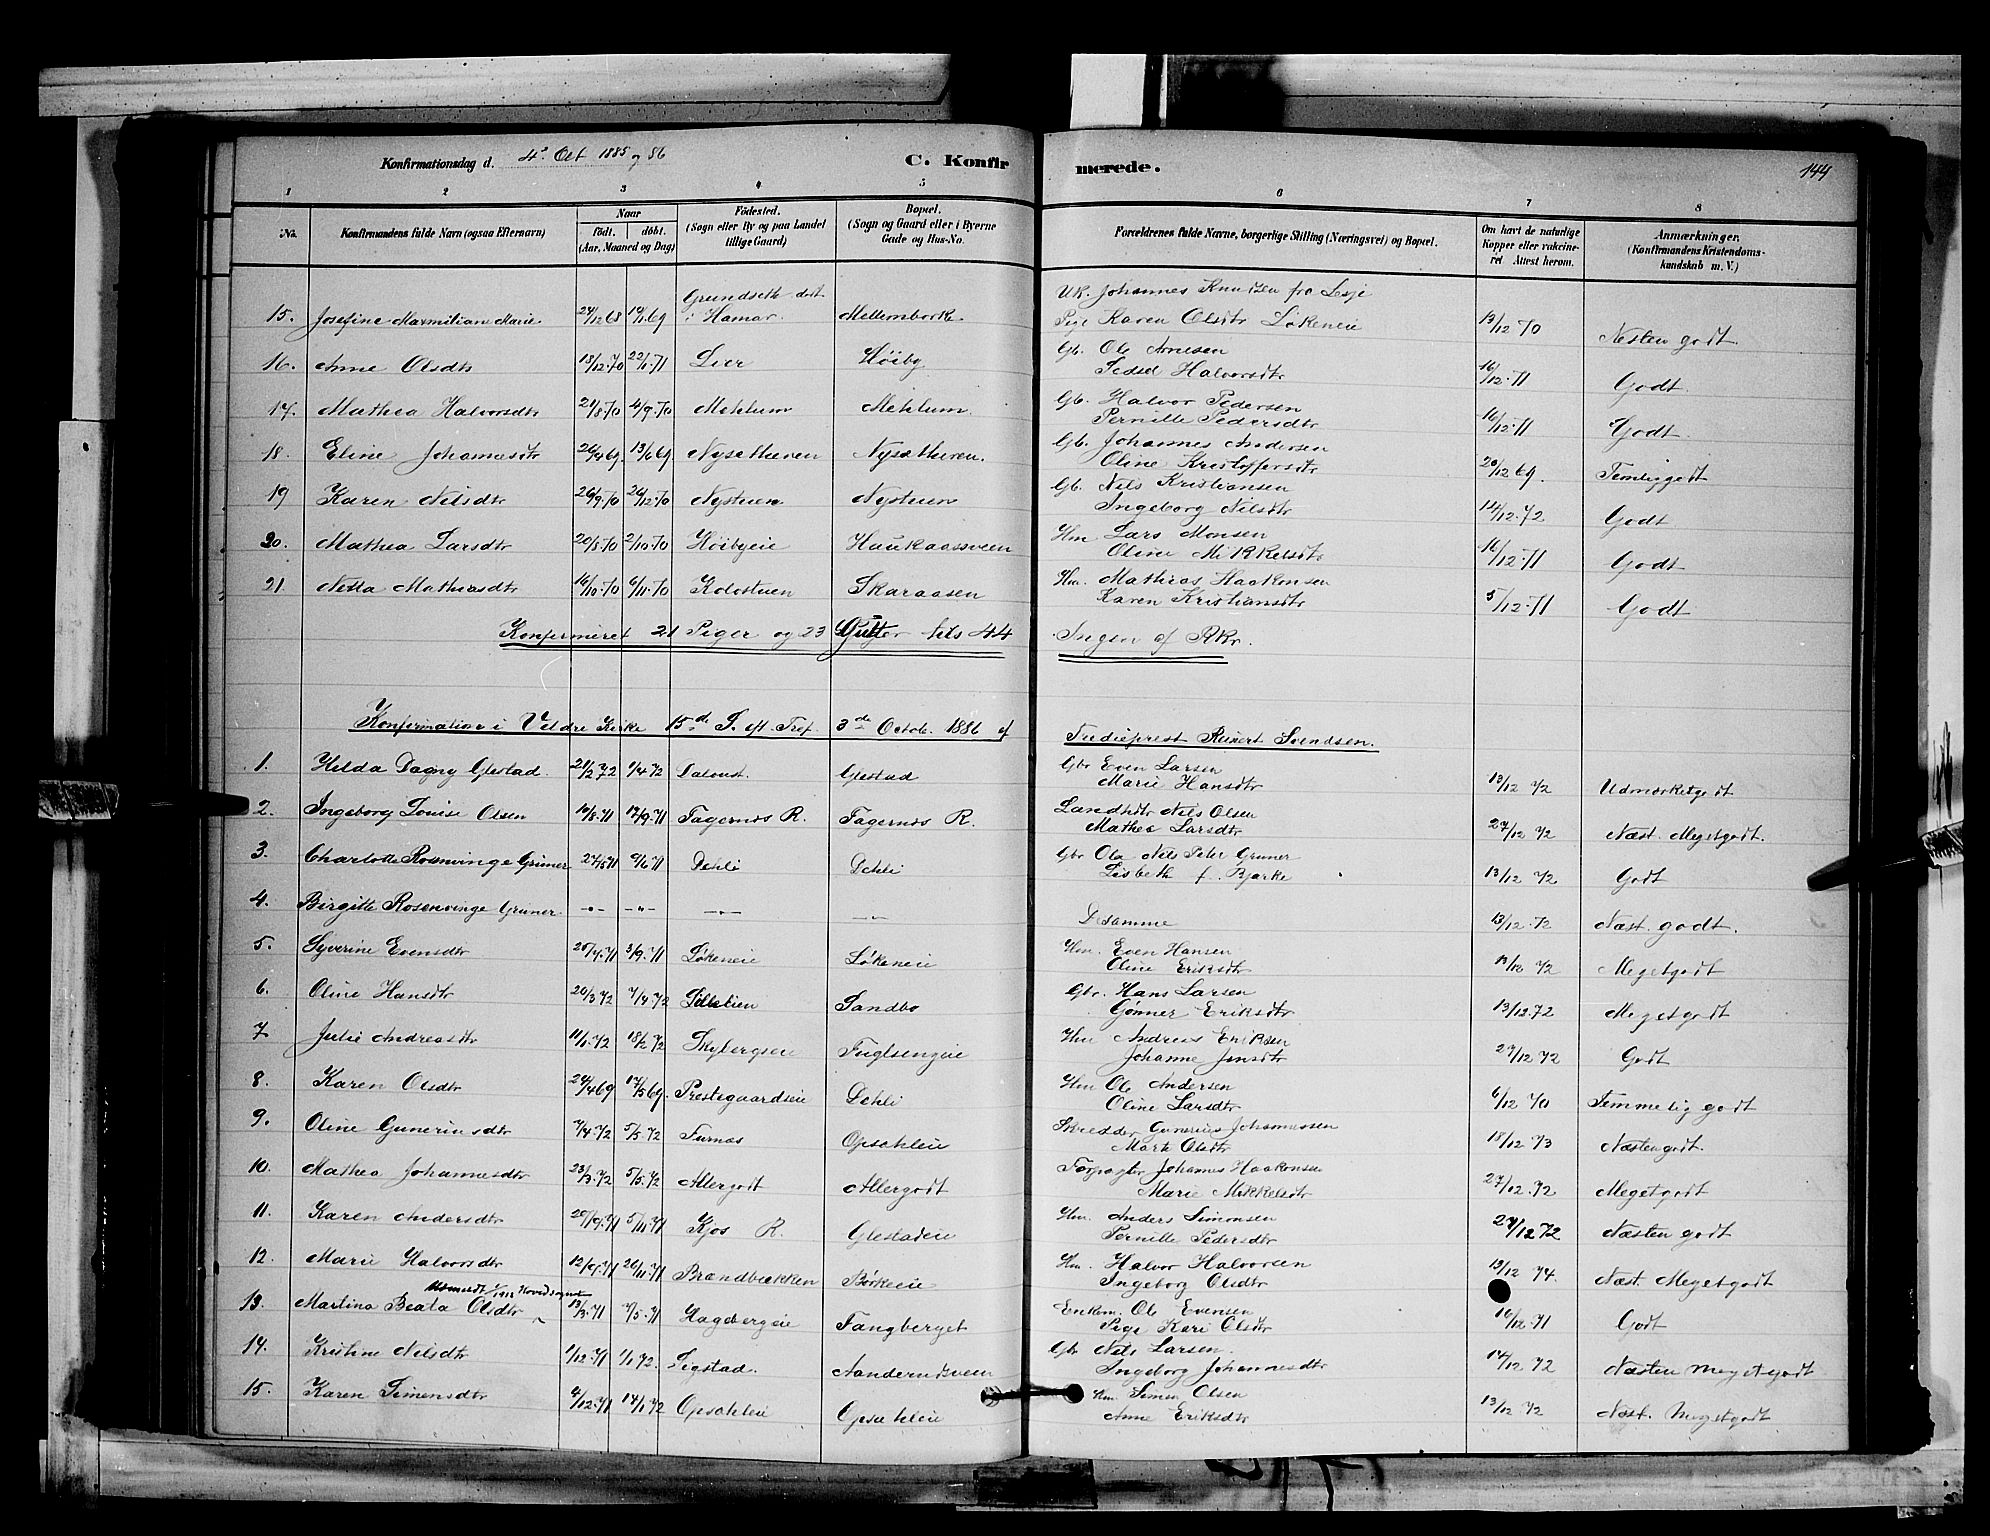 Konfirmationsdag d. 4de Oct 1885 og 86 C. Konfir merede. 144
1 2 3 4 5 6 7 8
No. Konfirmandens fulde Navn (ogsaa Efternavn) Naar født. døbt. (Aar, Maaned og Dag) Fødested. (Sogn eller By og paa Landet tillige Gaard) Bopæl. (Sogn og Gaard eller i Byerne Gade og Hus-No. Forældrenes fulde Navne, borgerlige Stilling (Næringsvei) og Bopæl. Om havt de naturlige Kopper eller vakcineret Attest herom. Anmærkninger. (Konfirmandens Kristendomskundskab m. V.)
15. Josefine Maxmilian Marie 24/12 68 19/1 69 Grundseth dist. i Hamar. Mellemborke Uk. Johannes Knutzen fra Lesje
Pige Karen Olsdtr Løkeneie 13/12 70 Nesten godt.
16. Anne Olsdtr 18/12.70 22/1.71 Lier Høiby Gb. Ole Arnesen
Sedsel Halvorsdtr 16/12.71 Godt.
17. Mathea Halvorsdtr 21/8.70 4/9.70 Mehlum Mehlum. Gb. Halvor Pedersen
Pernille Pedersdtr 16/12.71 Godt.
18. Eline Johannesdtr 26/4 69. 13/6 69. Nysætheren Nysætheren. Gb. Johannes Andersen
Oline Kristoffersdtr 20/12 69. Temlig godt
19 Karen Nilsdtr 26/9.70 26/12.70 Nystuen Nystuen Gb. Nels Kristiansen
Ingeborg Nilsdtr 14/12.72 Godt
20. Mathea Larsdtr 20/8.70 2/10.70 Høibyeie Haukaasveen Hm Lars Monsen
Oline Mikkelsdtr 16/12.71 Godt
21. Netta Mathiasdtr 16/10.70 6/11.70 Kolostuen Skaraasen Hm. Mathias Haakonsen
Karen Kristiansdtr 5/12.71 Godt
Konfirmeret 21 Piger og 23 Gutter tils 44 Ingen af RKr.
Konfirmation i Veldre Kirke 15de S. eft. Tref. 3de Octob. 1886 af Trediepræst Reinert Svendsen.
1. Helda Dagny Glestad. 21/2 72 1/4 72 Glestad Gbr Even Larsen
Marie Hansdtr 13/12 72 Udmærket godt
2. Ingeborg Louise Olsen 10/8.71 17/9.71 Fagernæs R. Fagernæs R. Landhdlr Nils Olsen
Mathea Larsdtr 27/12 72 Næst. Megetgodt.
3. Charlotte Rosenvinge Grüner 27/5 71 9/6 71 Dehli Dehli Gbr Ola Nils Peter Gruner
Lisbeth f. Bjerke 13/12 72 Godt
4. Birgitte Rosenvinge Grüner. -"- -"- -"- -"- De samme 13/12.72 Næst. godt.
5. Syverine Evensdtr 25/7.71 3/9.71 Løkeneie Løkeneie Hm. Even Hansen
Oline Eriksdtr 13/12 72 Megetgodt
6. Oline Hansdtr 20/3 72 7/4 72 Lillelien Sandbo Gbr. Hans Larsen
Gønner Eriksdtr 13/12.72 Megetgodt
7 Julie Andreasdtr 11/1.72 18/2 72 Skybergseie Fuglsengeie Hm Andreas Eriksen
Johanne Jensdtr 27/12 72 Godt
8. Karen Olsdtr 24/4 69 17/5 69. Prestegaardseie Dehli Hm Ole Andersen
Oline Larsdtr 6/12 70 Temmelig godt
9. Oline Gunerinsdtr 7/4 72 5/5.72 Furnæs Opsahleie Skredder Gunerius Johannessen
Marte Olsdtr 18/12 73 Næsten godt.
10. Mathea Johannesdtr 23/3.72 5/5.72 Allergodt Allergodt Forpagter Johannes Haakonsen
Marie Mikkelsdtr 27/12.72 Megetgodt
11. Karen Andersdtr 20/9.71 5/11.71 Kjos R. Glestadeie Hm. Anders Simonsen
Pernille Pedersdtr 27/12 72 Næsten godt
12. Marie Halvorsdtr 12/9.71 26/11.71 Brændbækken Børkeeie Hm. Halvor Halvorsen
Ingeborg Olsdtr 13/12 74. Næst. Megetgodt
Utmeldt 1912 Hovedsognet
13. Martina Beata Olsdtr 13/3.71 7/5.71 Hagebergeie Fangberget Enkem. Ole Evensen
Pige Kari Olsdtr 16/12.71 Godt
14. Kristine Nilsdtr 1/12.71 1/1 72. Sigstad. Aanderudsveen Gbr Nels Larsen.
Ingeborg Johannesdtr 14/12 72 Næsten Megetgodt
15. Karen Simensdtr 4/12.71 14/1 72 Opsahleie Opsahleie Hm. Simen Olsen
Anne Eriksdtr 13/12 72 Næst. Megetgodt